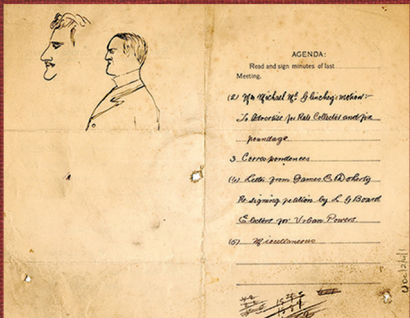 AGENDA:
Read and sign minutes of last
Meeting.
(2) Mr Michael Mc Glinchey's motion:-
To Advertise for Rate Collector and fix
poundage
3 Correspondences
(4) Letter from James C. Doherty
Re signing petition by L G Board
Electors for Urban Powers
(5) Miscellaneous